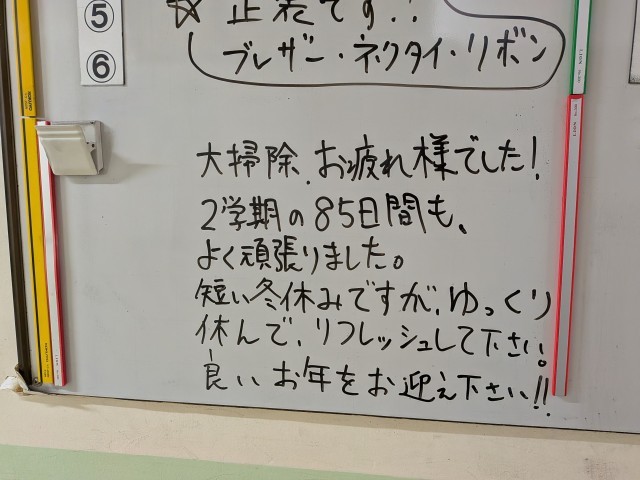 ⑤
⑥
☆ 正装です!!
ブレザー・ネクタイ・リボン
大掃除、お疲れ様でした!
2学期の85日間も、
よく頑張りました。
短い冬休みですが、ゆっくり
休んで、リフレッシュして下さい。
良いお年をお迎え下さい!!